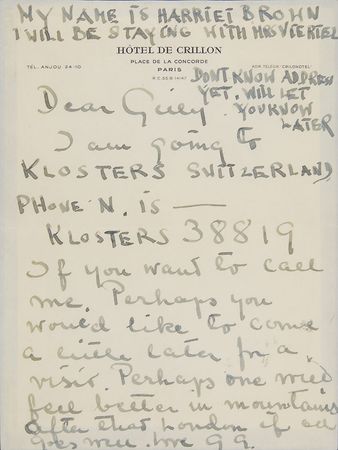 MY NAME IS HARRIET BROWN
I WILL BE STAYING WITH MRS VIERTEL
HÔTEL DE CRILLON
PLACE DE LA CONCORDE
PARIS
TEL. ANJOU 24-10
R.C. SEINE
DON'T KNOW ADDRESS
YET. WILL LET
YOU KNOW
LATER
Dear
I am going to
KLOSTERS SWITZERLAND
PHONE N. is —
KLOSTERS 38819
If you want to call
me. Perhaps you
would like to come
a little later for a
visit. Perhaps one will
feel better in mountains
after that London if all
goes well. love G G.